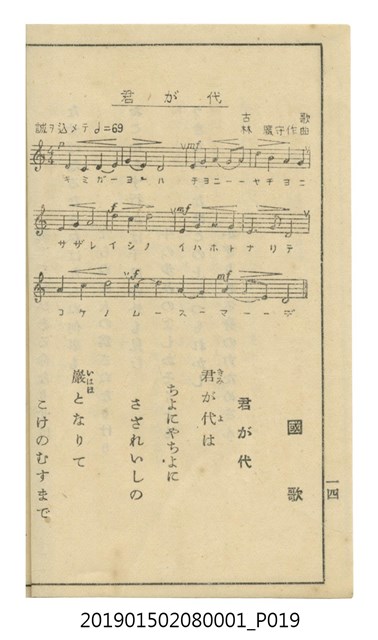 君が代
古歌
林廣守作曲
誠ヲ込メテ ♩=69
キミガーヨーハ チヨニーニーヤチヨニ
サザレイシノ イハホトナリテ
コケノムースーマーデ
一四
國歌
君が代
君が代は
きみ よ
ちよにやちよに
さざれいしの
巖となりて
いはほ
こけのむすまで
201901502080001_P019